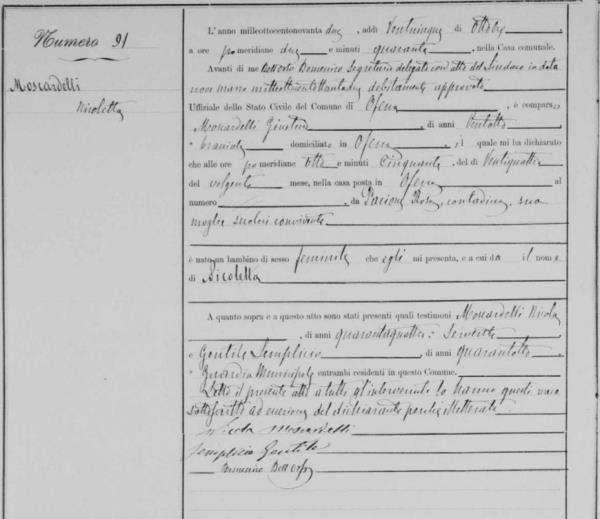 Numero 91
Moscardelli
Nicoletta
L'anno milleottocentonovanta due, addì Venticinque di Ottobre
a ore po meridiane due e minuti quaranta, nella Casa comunale.
Avanti di me Domenico Segretario delegato con atto del Sindaco in data
nove marzo milleottocento debitamente approvato
Uffiziale dello Stato Civile del Comune di Ofena, è comparso
Moscardelli Giustino, di anni Ventotto
domiciliato in Ofena, il quale mi ha dichiarato
che alle ore po meridiane sette e minuti Cinquanta, del dì Ventiquattro
del volgente mese, nella casa posta in Ofena al
numero , da Rosa, contadina, sua
moglie seco lui convivente
è nato un bambino di sesso femminile che egli mi presenta, e a cui da il nome
di Nicoletta
A quanto sopra e a questo atto sono stati presenti quali testimoni Moscardelli Nicola
, di anni quarantaquattro
e Gentile Semplicio, di anni quarantotto,
Guardia Municipale entrambi residenti in questo Comune.
Letto il presente atto a tutti gl'intervenuti lo hanno questi meco
sottoscritto ad eccezione del dichiarante perchè illetterato.
Nicola Moscardelli
Semplicio Gentile
Domenico